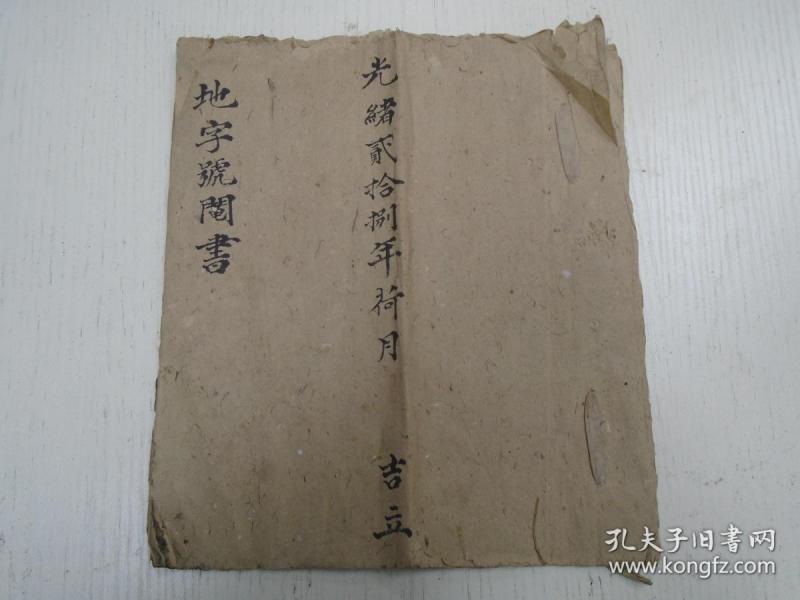 光緒貳拾捌年荷月 吉立
地字號鬮書
孔夫子旧书网
www.kongfz.com